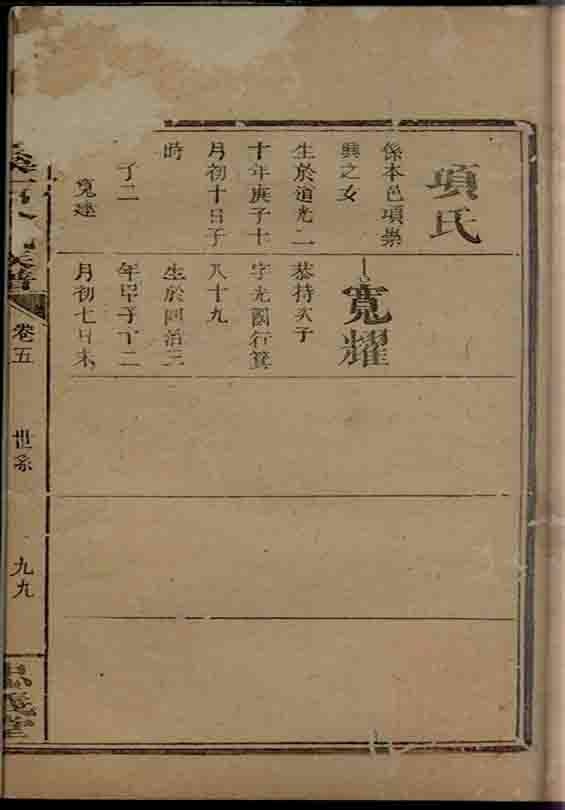 項氏
係本邑項崇
興之女
生於道光二
十年庚子十
月初十日子
時
子二
寬達
寬耀
恭持次子
字光國行箕
八十九
生於同治三
年甲子十二
月初七日未
族譜
卷五
世系
九九